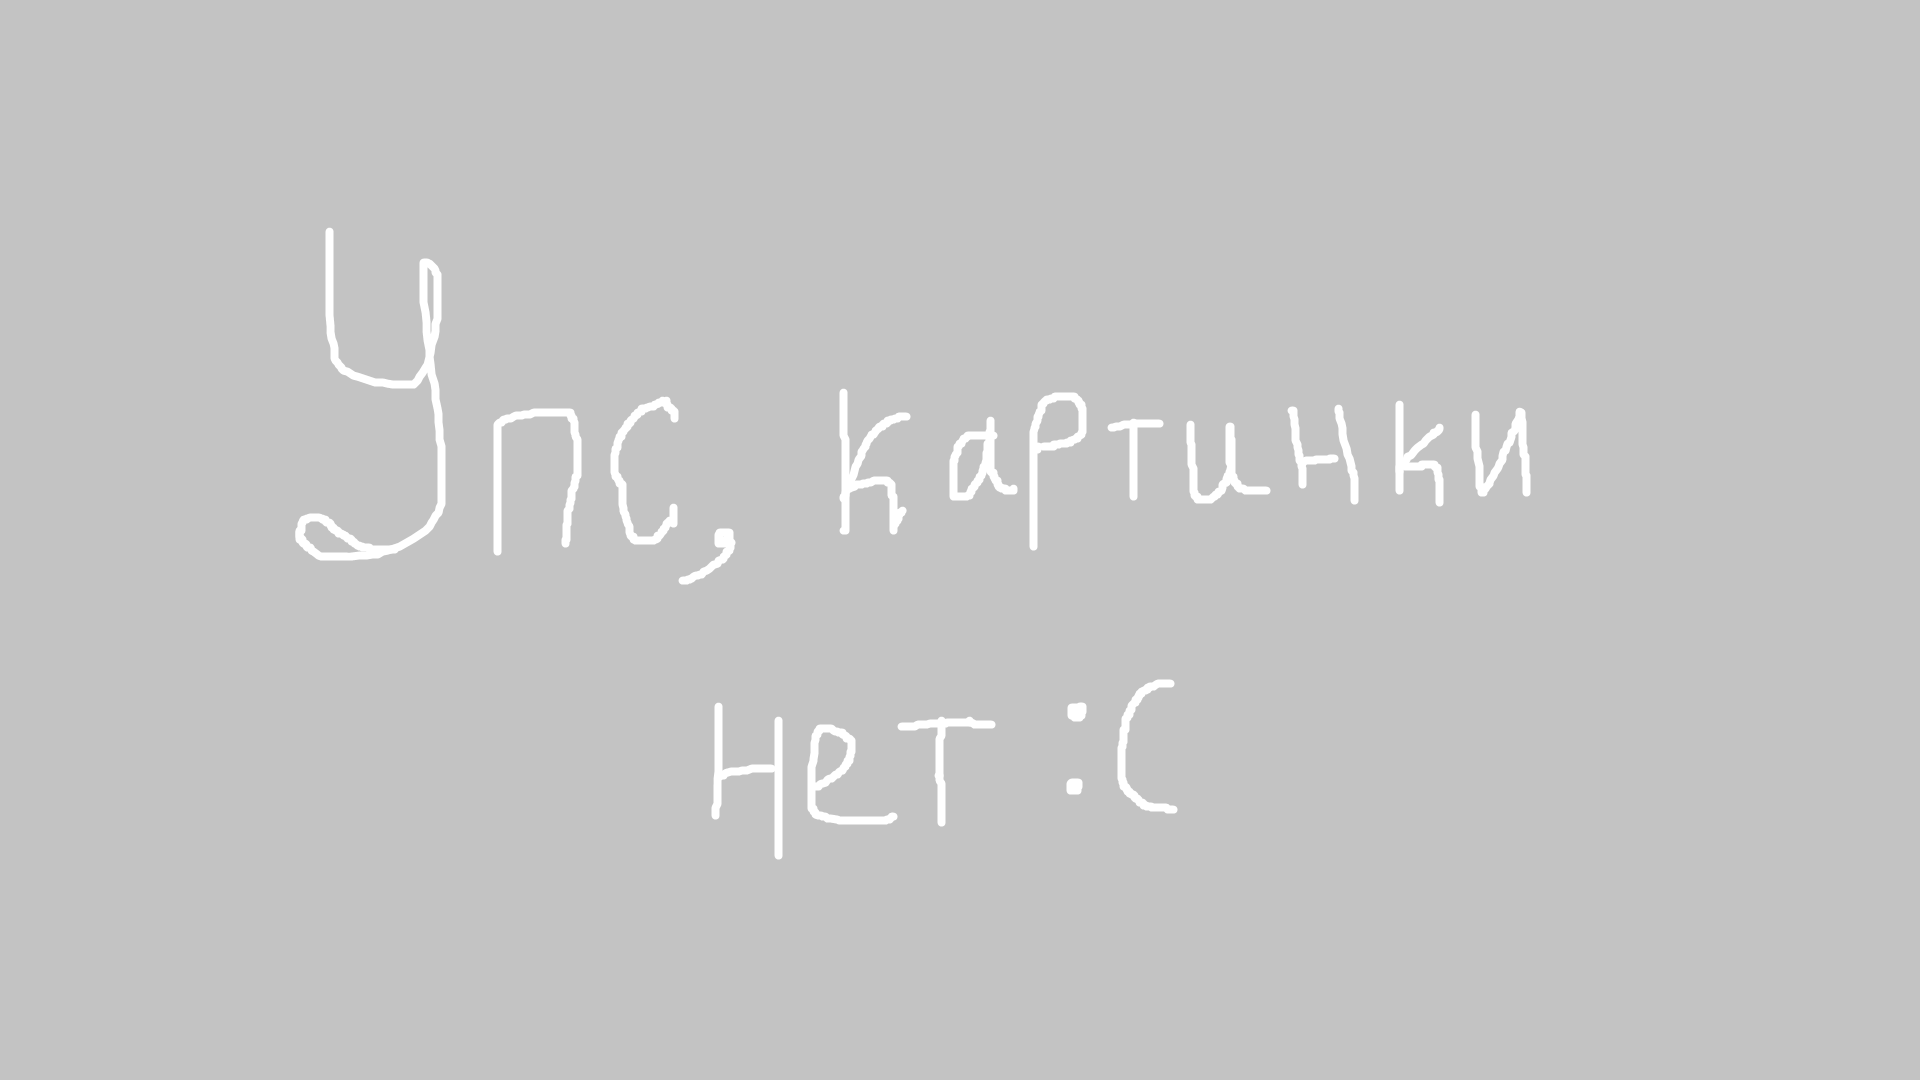 Упс, картинки
нет :С